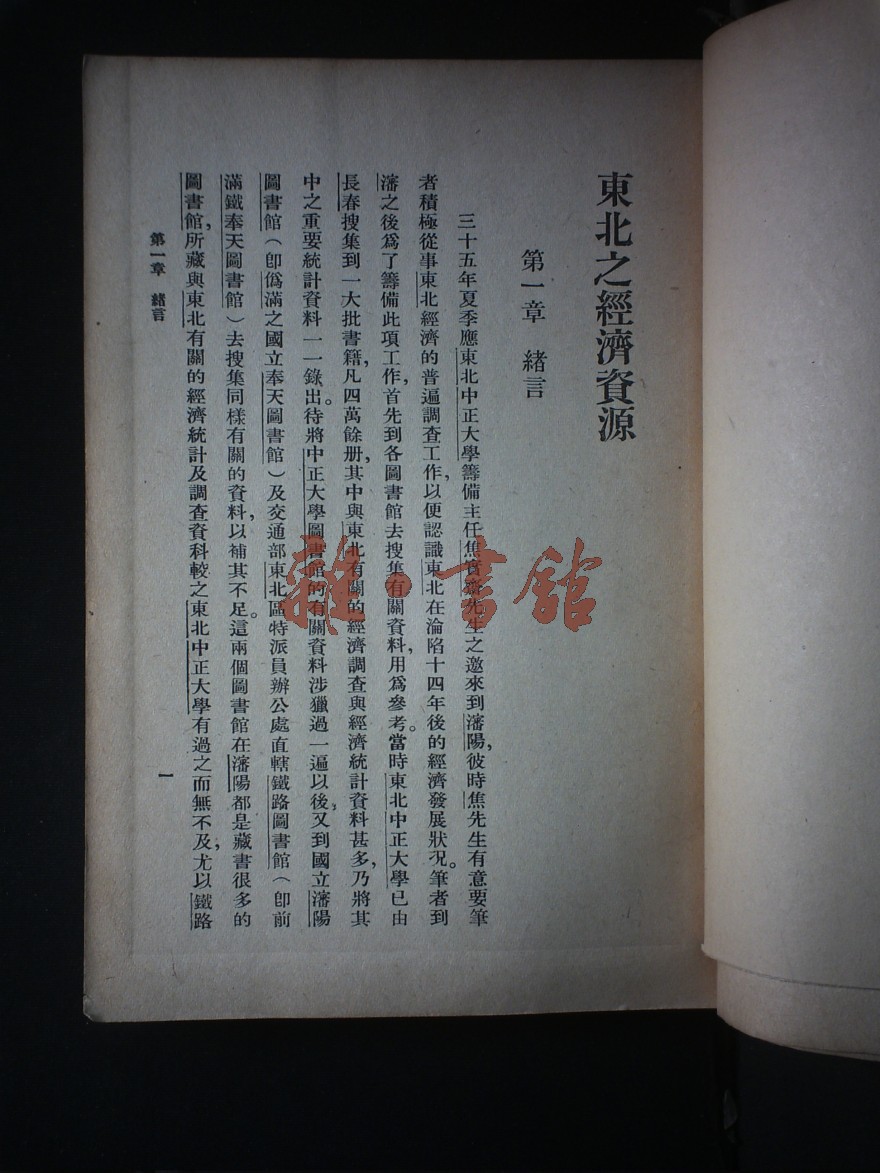 東北之經濟資源
第一章 緒言
三十五年夏季應東北中正大學籌備主任焦實齋先生之邀來到瀋陽,彼時焦先生有意要筆
者積極從事東北經濟的普遍調查工作,以便認識東北在淪陷十四年後的經濟發展狀況。筆者到
瀋之後爲了籌備此項工作,首先到各圖書館去搜集有關資料,用爲參考。當時東北中正大學已由
長春搜集到一大批書籍,凡四萬餘册,其中與東北有關的經濟調查與經濟統計資料甚多,乃將其
中之重要統計資料一一錄出。待將中正大學圖書館的有關資料涉獵過一遍以後,又到國立瀋陽
圖書館(卽僞滿之國立奉天圖書館)及交通部東北區特派員辦公處直轄鐵路圖書館(卽前
滿鐵奉天圖書館)去搜集同樣有關的資料,以補其不足。這兩個圖書館在瀋陽都是藏書很多的
圖書館,所藏與東北有關的經濟統計及調查資科較之東北中正大學有過之而無不及,尤以鐵路
第一章 緒言
一
雜·書館